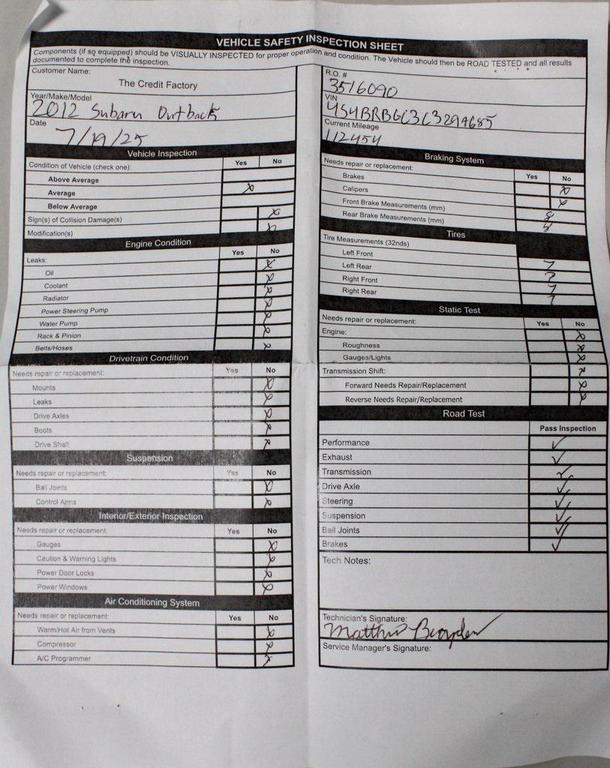 VEHICLE SAFETY INSPECTION SHEET
Components (if so equipped) should be VISUALLY INSPECTED for proper operation and condition. The Vehicle should then be ROAD TESTED and all results
documented to complete the inspection.
Customer Name:
The Credit Factory
Year/Make/Model
2012 Subaru Outback
Date
7/19/25
Vehicle Inspection
Condition of Vehicle (check one): Yes No
Above Average
Average X
Below Average
Sign(s) of Collision Damage(s) X
Modification(s) X
Engine Condition
Leaks: Yes No
Oil X
Coolant X
Radiator X
Power Steering Pump X
Water Pump X
Rack & Pinion X
Belts/Hoses X
Drivetrain Condition
Needs repair or replacement: Yes No
Mounts X
Leaks X
Drive Axles X
Boots X
Drive Shaft X
Suspension
Needs repair or replacement: Yes No
Ball Joints X
Control Arms X
Interior/Exterior Inspection
Needs repair or replacement: Yes No
Gauges X
Caution & Warning Lights X
Power Door Locks X
Power Windows X
Air Conditioning System
Needs repair or replacement: Yes No
Warm/Hot Air from Vents X
Compressor X
A/C Programmer X
R.O. #
3516090
VIN
4S4BRBGC3C3294685
Current Mileage
112454
Braking System
Needs repair or replacement: Yes No
Brakes X
Calipers X
Front Brake Measurements (mm) 8
Rear Brake Measurements (mm)
Tires
Tire Measurements (32nds)
Left Front 7
Left Rear 7
Right Front 7
Right Rear 7
Static Test
Needs repair or replacement: Yes No
Engine: X
Roughness X
Gauges/Lights X
Transmission Shift: X
Forward Needs Repair/Replacement X
Reverse Needs Repair/Replacement X
Road Test
Pass Inspection
Performance ✓
Exhaust ✓
Transmission ✓
Drive Axle ✓
Steering ✓
Suspension ✓
Ball Joints ✓
Brakes ✓
Tech Notes:
Technician's Signature:
Matthew
Service Manager's Signature: